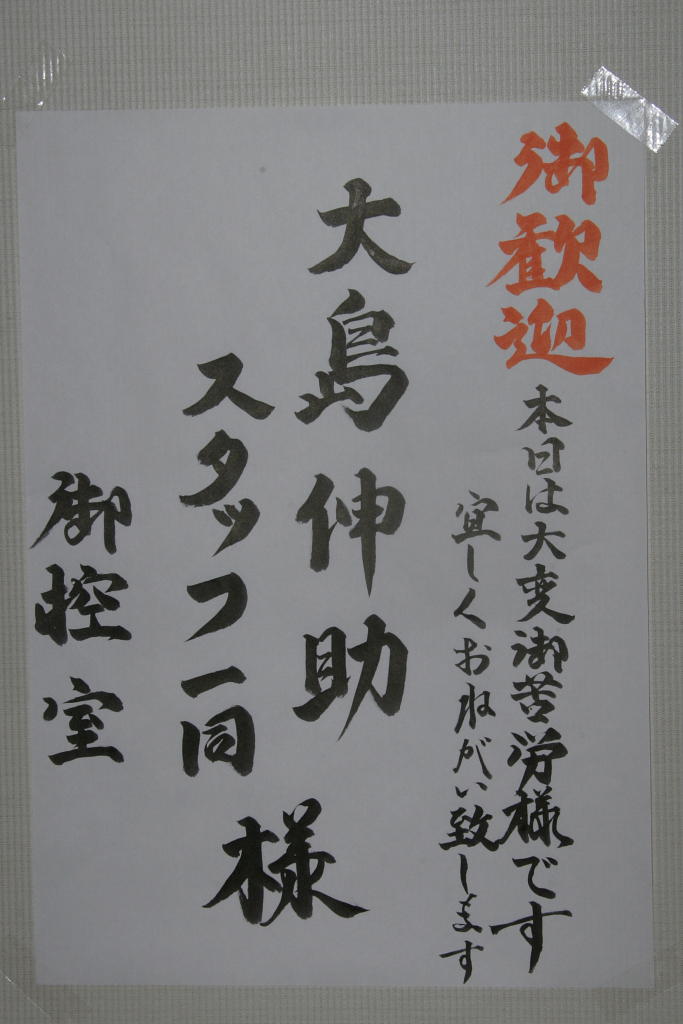 御歓迎
本日は大変御苦労様です
宜しくおねがい致します
大島伸助
スタッフ一同
様
御控室